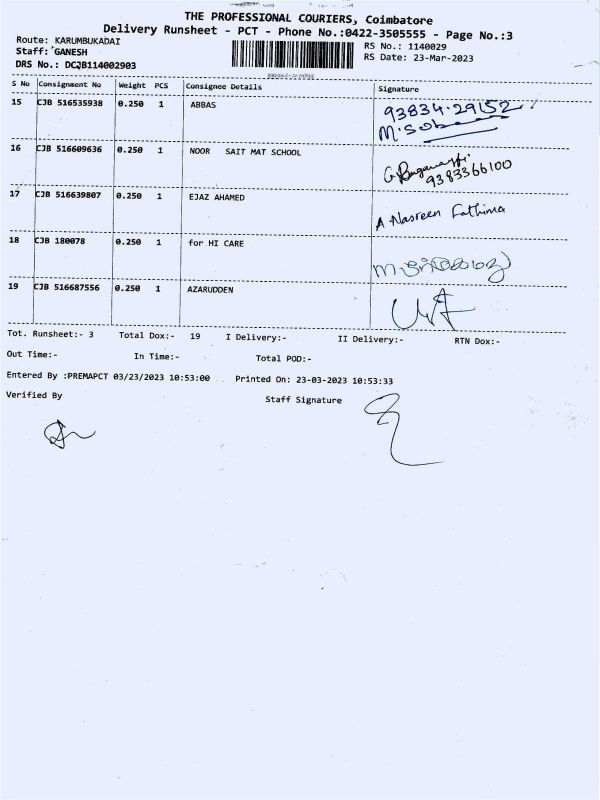 THE PROFESSIONAL COURIERS, Coimbatore
Delivery Runsheet - PCT - Phone No.:0422-3505555 - Page No.:3
Route: KARUMBUKADAI
RS No.: 1140029
Staff: GANESH
RS Date: 23-Mar-2023
DRS No.: DCJB114002903
S No Consignment No Weight PCS Consignee Details Signature
15 CJB 516535938 0.250 1 ABBAS
93834-29152
16 CJB 516609636 0.250 1 NOOR SAIT MAT SCHOOL
9383366100
17 CJB 516639807 0.250 1 EJAZ AHAMED
A Nasreen Fathima
18 CJB 180078 0.250 1 for HI CARE
19 CJB 516687556 0.250 1 AZARUDDEN
Tot. Runsheet:- 3 Total Dox:- 19 I Delivery:- II Delivery:- RTN Dox:-
Out Time:- In Time:- Total POD:-
Entered By :PREMAPCT 03/23/2023 10:53:00 Printed On: 23-03-2023 10:53:33
Verified By Staff Signature